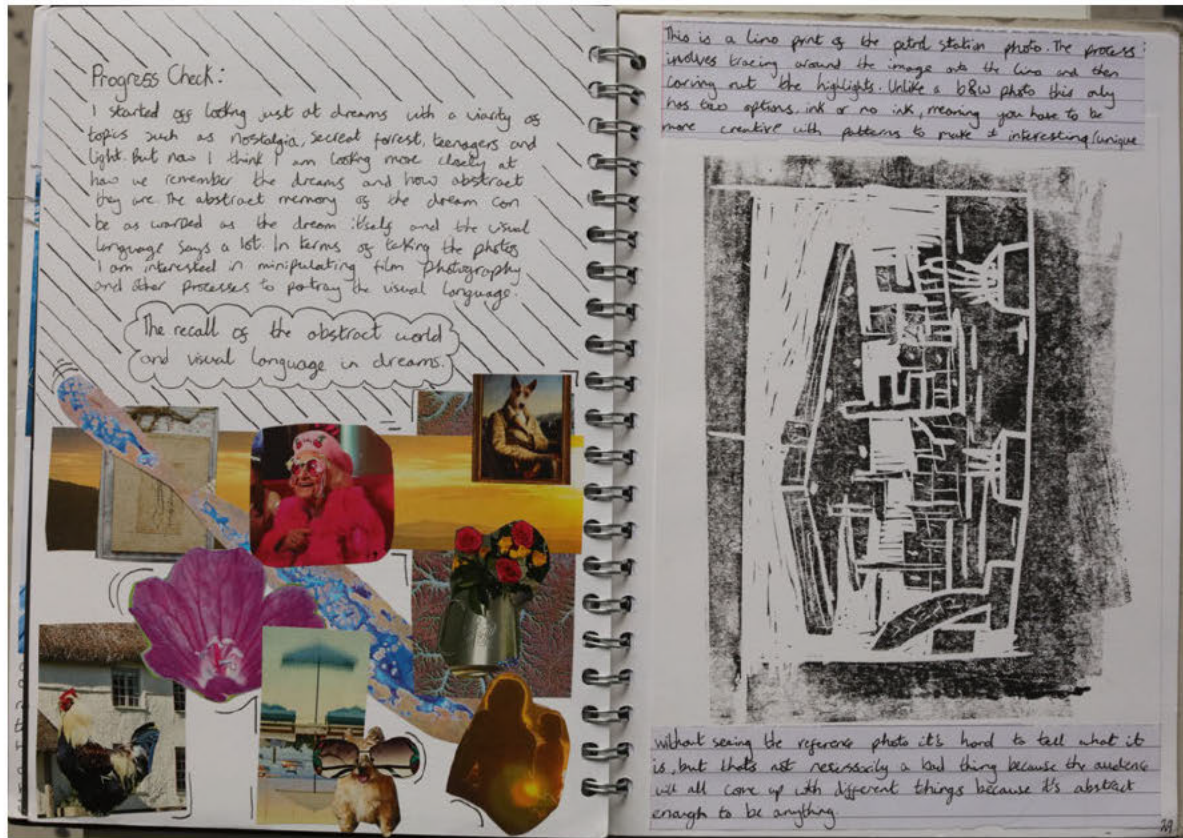 Progress Check:
I started off looking just at dreams with a viarity of
topics such as nostalgia, secreat forrest, teenagers and
light. But now I think I am looking more closely at
how we remember the dreams and how abstract
they are. The abstract memory of the dream can
be as warped as the dream itself and the visual
language says a lot. In terms of taking the photos
I am interested in minipulating film photography
and other processes to portray the visual language.
The recall of the abstract world
and visual language in dreams.
This is a lino print of the petrol station photo. The process:
involves tracing around the image onto the lino and then
carving out the highlights. Unlike a b&w photo this only
has two options, ink or no ink, meaning you have to be
more creative with patterns to make it interesting/unique
without seeing the reference photo it's hard to tell what it
is, but thats not nessissarily a bad thing because the audience
will all come up with different things because it's abstract
enough to be anything.
29